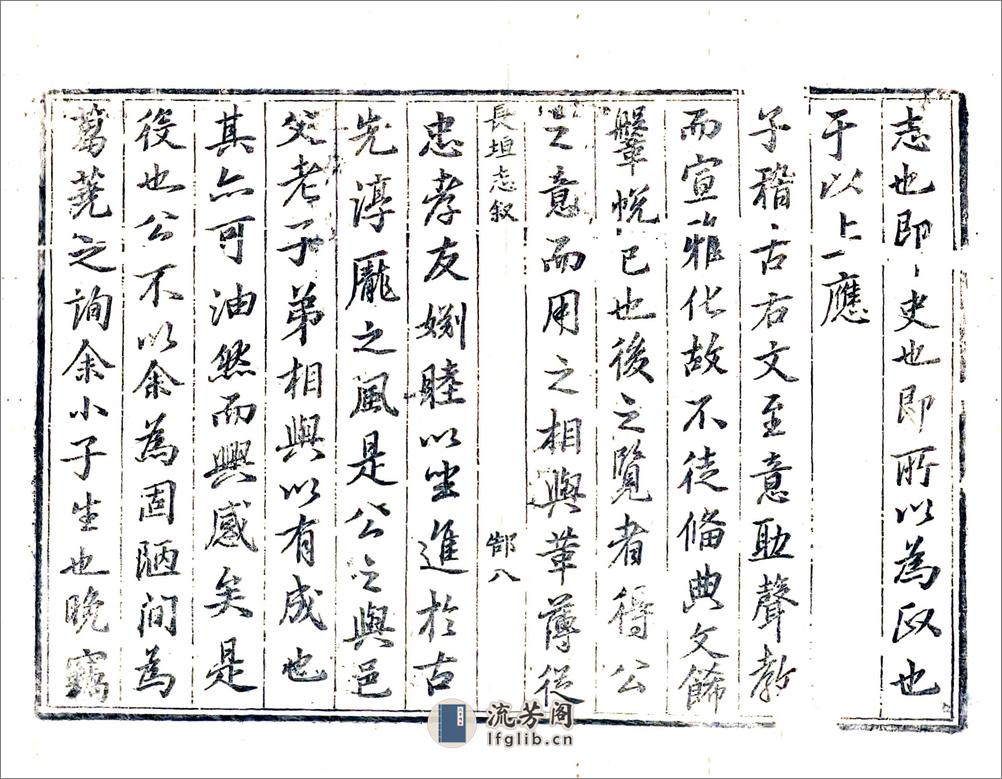 志也即〻史也即所以為政也
于以上應
子稽古右文至意助聲教
而宣雅化故不徒脩典文餙
鞶帨已也後之覽者得公
之意而用之相與革薄從
長垣志叙
郜八
忠孝友婣睦以坐進於古
先淳龐之風是公之與邑
父老子弟相與以有成也
其亦可油然而興感矣是
役也公不以余為固陋間為
蒭蕘之詢余小子生也晚竊
流芳阁
lfglib.cn